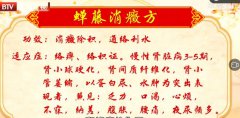 BTV
蝉藤消癥方
功效：消癥除积，通络利水
适应症：络痹、络积证。慢性肾脏病3-5期，
肾小球硬化，肾间质纤维化，肾小
管萎缩，以蛋白尿、水肿为突出表
现者，兼见：乏力，口渴，心烦，
不寐，纳差，腹胀，腰痛，夜尿频多。